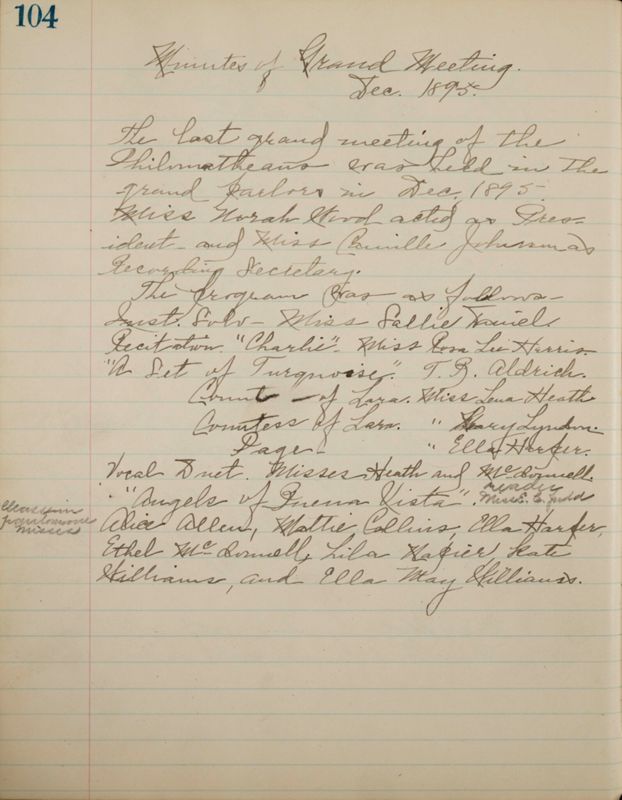 104
Minutes of Grand Meeting.
Dec. 1895.
The last grand meeting of the
Philomatheans was held in the
grand parlors in Dec, 1895
Miss Norah Wood acted as Pres-
ident - and Miss Camille Johnson as
Recording Secretary.
The program was as follows -
Inst. Solo - Miss Sallie Daniel.
Recitation. "Charlie". Miss Rosa Lee Harris.
"A Set of Turquoise". T. B. Aldrich.
Count - of Lara. Miss Lena Heath
Countess of Lara. " Mary Lyndon.
Page - " Ella Harper.
Vocal Duet. Misses Heath and McDonnell.
"Angels of Buena Vista". reader
Miss E. C. Judd
Class in
pantomime
misses
Alice Allen, Mattie Collins, Ella Harper,
Ethel McDonnell, Lila Napier, Kate
Williams, and Ella May Williams.